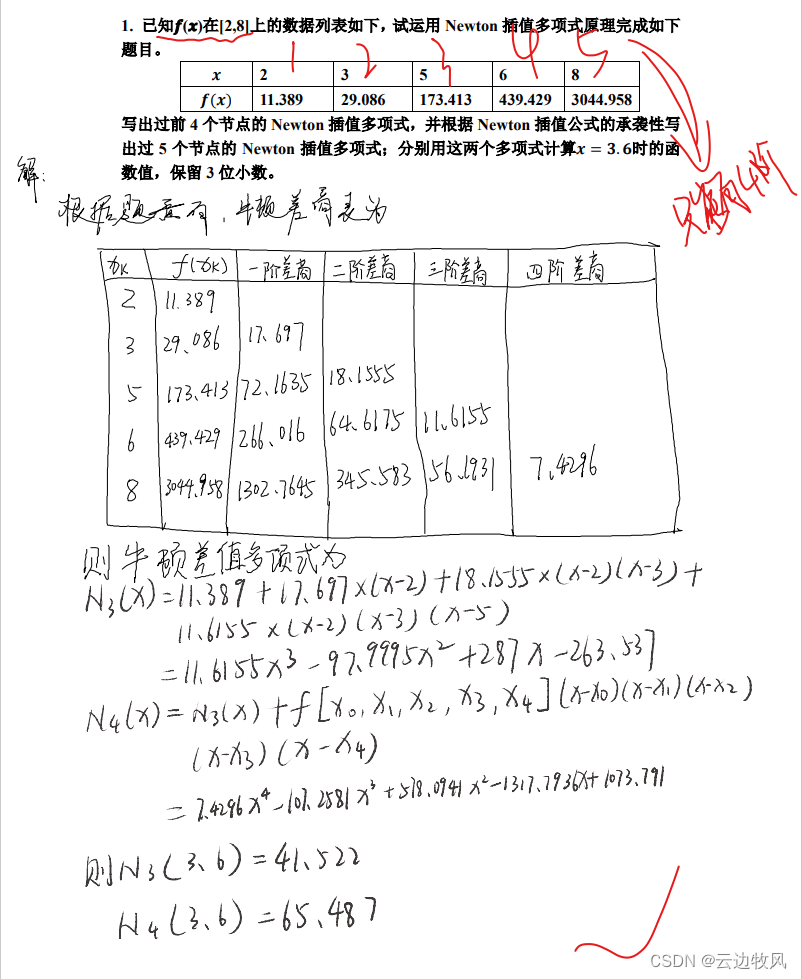 1. 已知f(x)在[2,8]上的数据列表如下，试运用 Newton 插值多项式原理完成如下
题目。
1 2 3 4 5
x 2 3 5 6 8
f(x) 11.389 29.086 173.413 439.429 3044.958
写出过前 4 个节点的 Newton 插值多项式，并根据 Newton 插值公式的承袭性写
出过 5 个节点的 Newton 插值多项式；分别用这两个多项式计算x = 3.6时的函
数值，保留 3 位小数。
解：
根据题意有，牛顿差商表为
xK f(xK) 一阶差商 二阶差商 三阶差商 四阶差商
2 11.389
3 29.086 17.697
5 173.413 72.1635 18.1555
6 439.429 266.016 64.6175 11.6155
8 3044.958 1302.7645 345.583 56.1931 7.4296
则牛顿差值多项式为
N3(x)=11.389+17.697×(x-2)+18.1555×(x-2)(x-3)+
11.6155×(x-2)(x-3)(x-5)
=11.6155x³-97.9995x²+287x-263.537
N4(x)=N3(x)+f[x0,x1,x2,x3,x4](x-x0)(x-x1)(x-x2)
(x-x3)(x-x4)
=7.4296x⁴-107.2581x³+578.0941x²-1317.7936x+1073.791
则N3(3.6)=41.522
N4(3.6)=65.487
CSDN @云边牧风